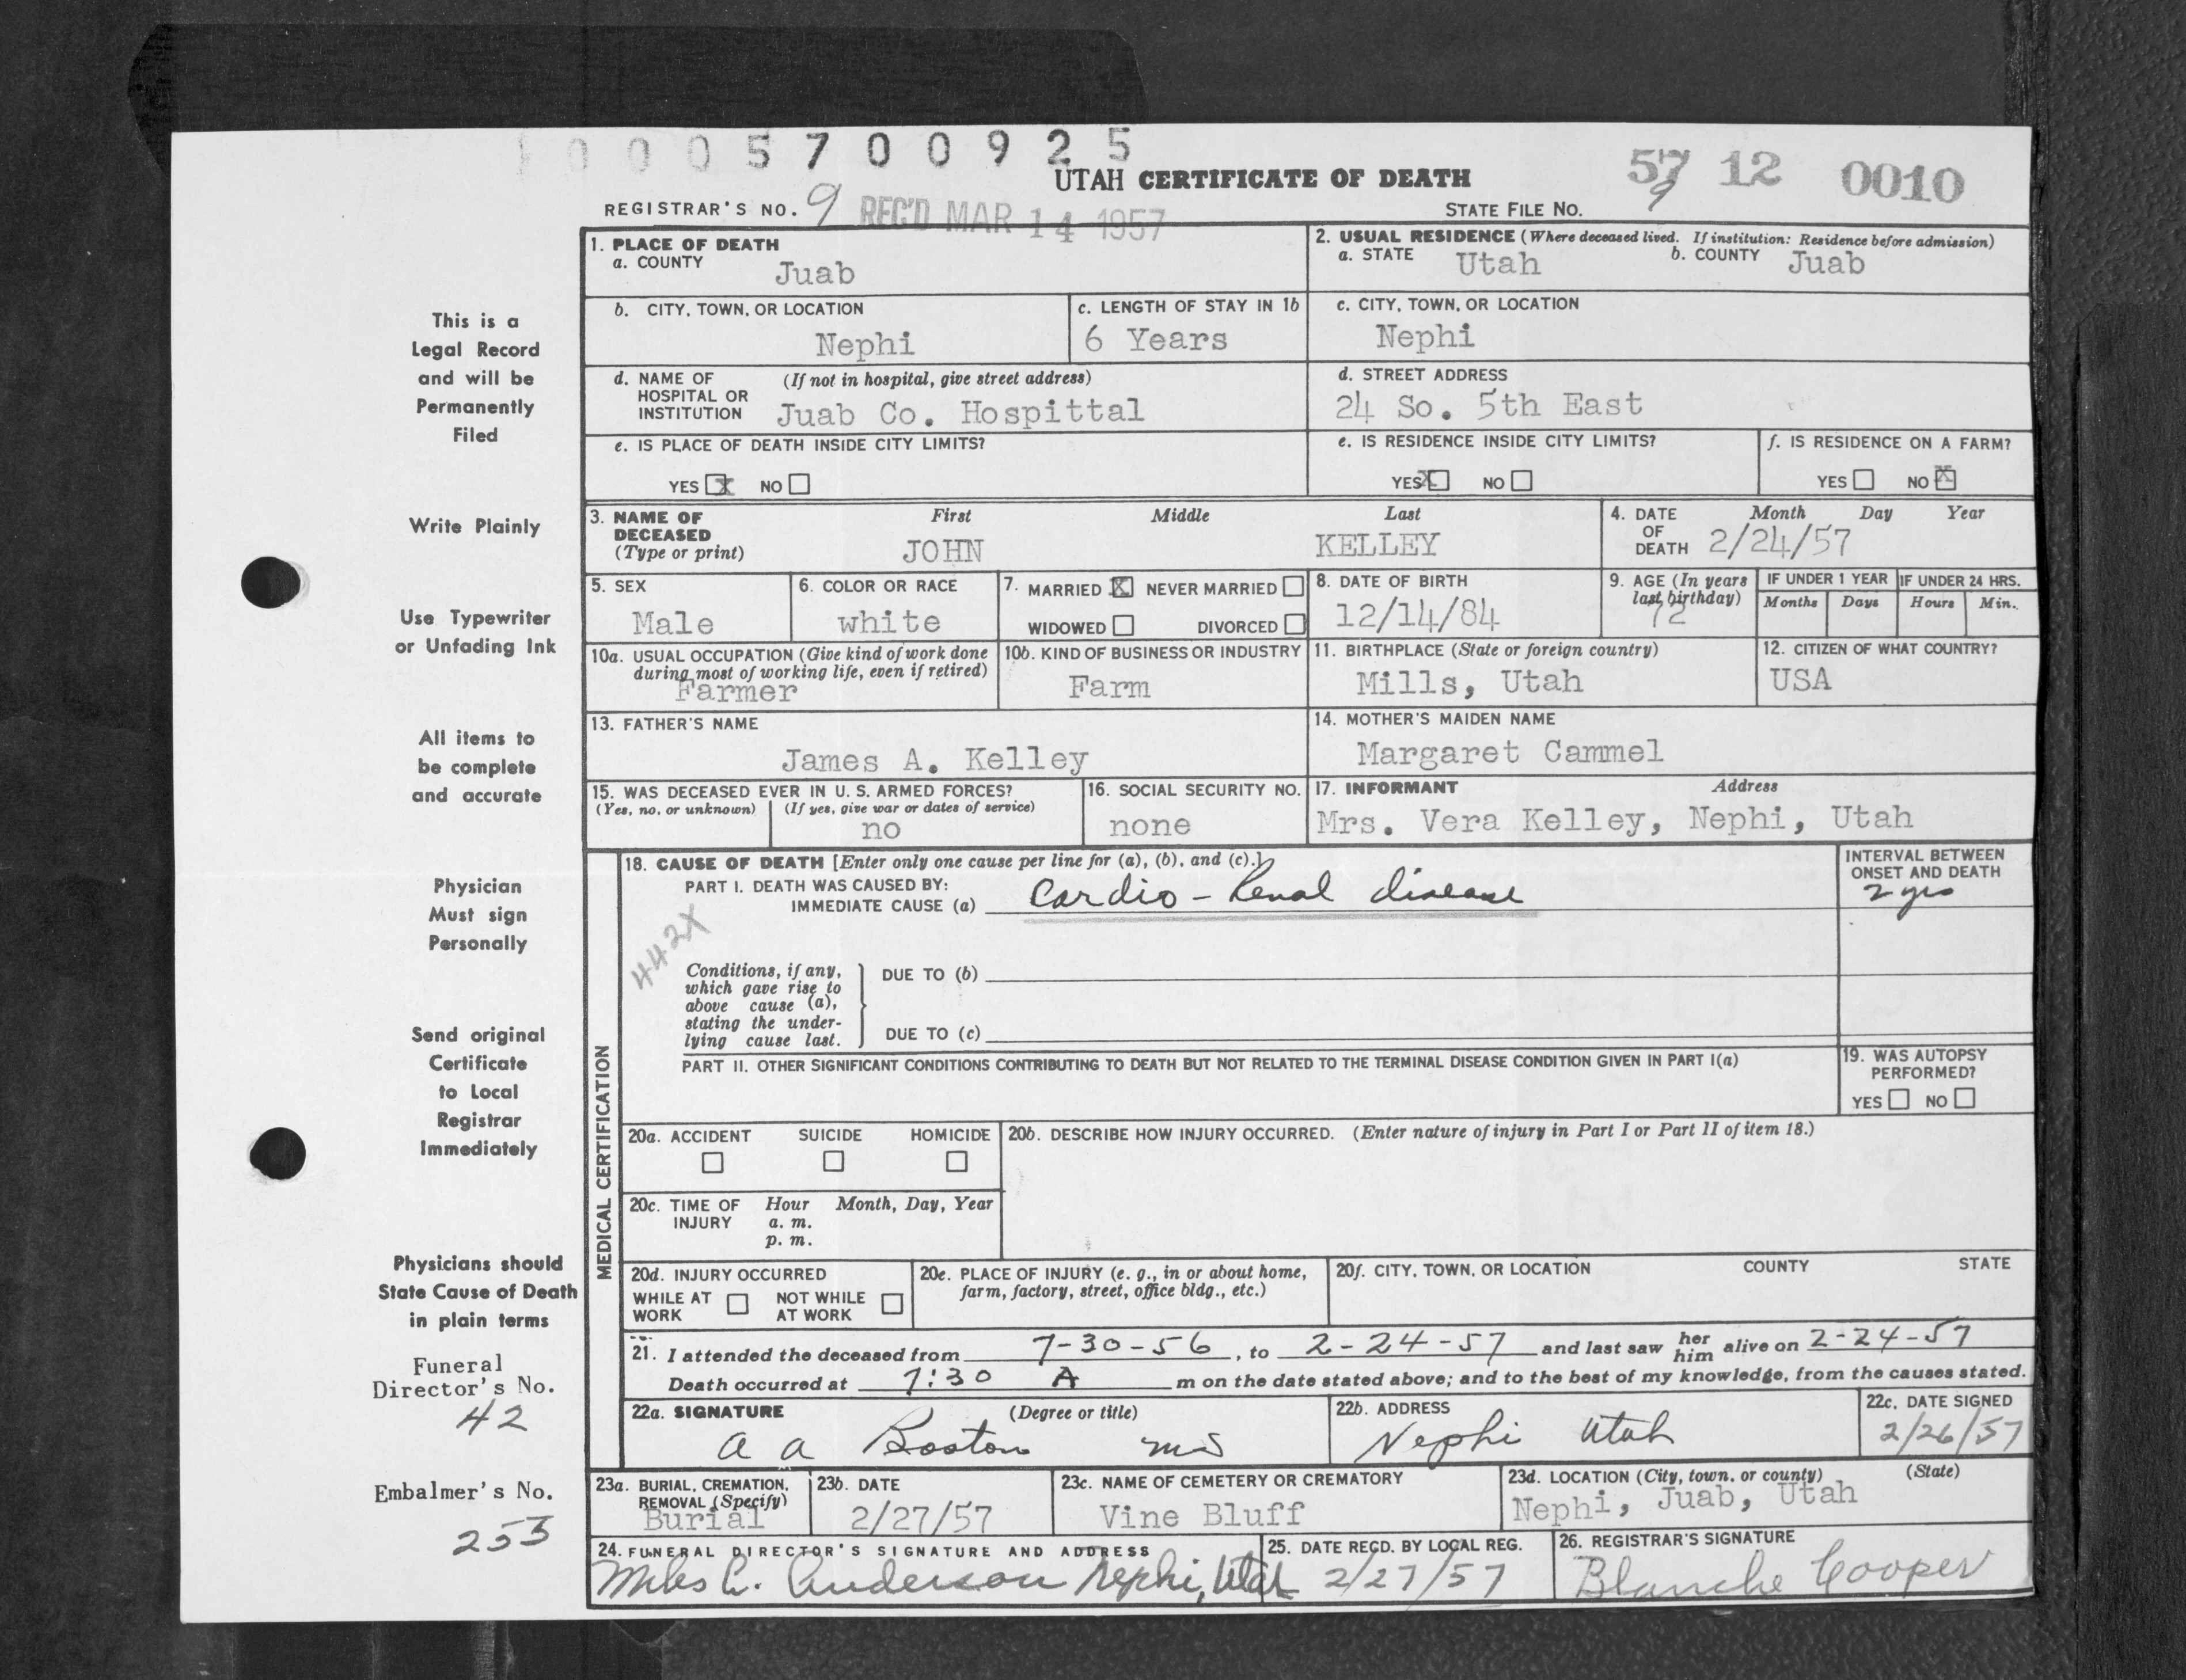 0 0 0 5 7 0 0 9 2 5
UTAH CERTIFICATE OF DEATH
57 12 0010
REGISTRAR'S NO. 9 REC'D MAR 14 1957
STATE FILE NO. 9
1. PLACE OF DEATH
a. COUNTY Juab
2. USUAL RESIDENCE (Where deceased lived. If institution: Residence before admission)
a. STATE Utah b. COUNTY Juab
b. CITY, TOWN, OR LOCATION
Nephi
c. LENGTH OF STAY IN 1b
6 Years
c. CITY, TOWN, OR LOCATION
Nephi
d. NAME OF HOSPITAL OR INSTITUTION (If not in hospital, give street address)
Juab Co. Hospittal
d. STREET ADDRESS
24 So. 5th East
e. IS PLACE OF DEATH INSIDE CITY LIMITS?
YES X NO
e. IS RESIDENCE INSIDE CITY LIMITS?
YES X NO
f. IS RESIDENCE ON A FARM?
YES NO X
3. NAME OF DECEASED (Type or print)
First Middle Last
JOHN KELLEY
4. DATE OF DEATH Month Day Year
2/24/57
5. SEX
Male
6. COLOR OR RACE
white
7. MARRIED X NEVER MARRIED
WIDOWED DIVORCED
8. DATE OF BIRTH
12/14/84
9. AGE (In years last birthday)
72
IF UNDER 1 YEAR IF UNDER 24 HRS.
Months Days Hours Min.
10a. USUAL OCCUPATION (Give kind of work done during most of working life, even if retired)
Farmer
10b. KIND OF BUSINESS OR INDUSTRY
Farm
11. BIRTHPLACE (State or foreign country)
Mills, Utah
12. CITIZEN OF WHAT COUNTRY?
USA
13. FATHER'S NAME
James A. Kelley
14. MOTHER'S MAIDEN NAME
Margaret Cammel
15. WAS DECEASED EVER IN U. S. ARMED FORCES?
(Yes, no, or unknown) (If yes, give war or dates of service)
no
16. SOCIAL SECURITY NO.
none
17. INFORMANT Address
Mrs. Vera Kelley, Nephi, Utah
MEDICAL CERTIFICATION
18. CAUSE OF DEATH [Enter only one cause per line for (a), (b), and (c).]
PART I. DEATH WAS CAUSED BY:
IMMEDIATE CAUSE (a) Cardio - Renal disease
INTERVAL BETWEEN ONSET AND DEATH
2 yrs
442X
Conditions, if any, which gave rise to above cause (a), stating the underlying cause last.
DUE TO (b)
DUE TO (c)
PART II. OTHER SIGNIFICANT CONDITIONS CONTRIBUTING TO DEATH BUT NOT RELATED TO THE TERMINAL DISEASE CONDITION GIVEN IN PART I(a)
19. WAS AUTOPSY PERFORMED?
YES NO
20a. ACCIDENT SUICIDE HOMICIDE
20b. DESCRIBE HOW INJURY OCCURRED. (Enter nature of injury in Part I or Part II of item 18.)
20c. TIME OF INJURY Hour Month, Day, Year
a. m.
p. m.
20d. INJURY OCCURRED
WHILE AT WORK NOT WHILE AT WORK
20e. PLACE OF INJURY (e. g., in or about home, farm, factory, street, office bldg., etc.)
20f. CITY, TOWN, OR LOCATION COUNTY STATE
21. I attended the deceased from 7-30-56, to 2-24-57 and last saw her him alive on 2-24-57
Death occurred at 7:30 A m on the date stated above; and to the best of my knowledge, from the causes stated.
22a. SIGNATURE (Degree or title)
A A Boston MD
22b. ADDRESS
Nephi Utah
22c. DATE SIGNED
2/26/57
23a. BURIAL, CREMATION, REMOVAL (Specify)
Burial
23b. DATE
2/27/57
23c. NAME OF CEMETERY OR CREMATORY
Vine Bluff
23d. LOCATION (City, town, or county) (State)
Nephi, Juab, Utah
24. FUNERAL DIRECTOR'S SIGNATURE AND ADDRESS
Miles L. Anderson Nephi, Utah
25. DATE RECD. BY LOCAL REG.
2/27/57
26. REGISTRAR'S SIGNATURE
Blanche Cooper
This is a
Legal Record
and will be
Permanently
Filed
Write Plainly
Use Typewriter
or Unfading Ink
All items to
be complete
and accurate
Physician
Must sign
Personally
Send original
Certificate
to Local
Registrar
Immediately
Physicians should
State Cause of Death
in plain terms
Funeral
Director's No.
42
Embalmer's No.
253